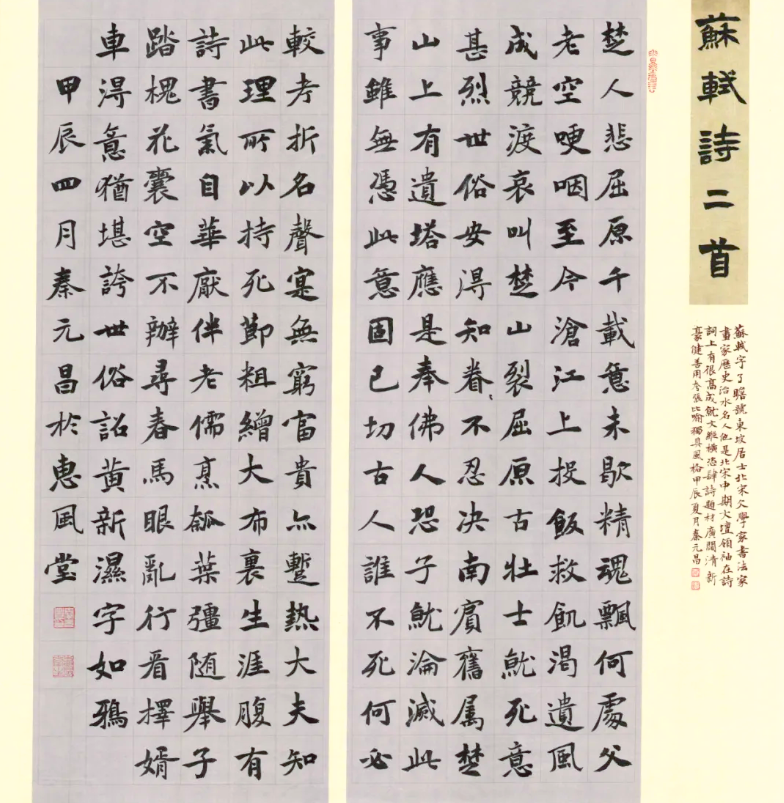 蘇軾詩二首
蘇軾字子瞻號東坡居士北宋文學家書法家
畫家歷史治水名人他是北宋中期文壇領袖在詩
詞上有很高成就文縱橫恣肆詩題材廣闊清新
豪健善用夸張比喻獨具風格甲辰夏月秦元昌
楚人悲屈原千載意未歇精魂飄何處父
老空哽咽至今滄江上投飯救飢渴遺風
成競渡哀叫楚山裂屈原古壯士就死意
甚烈世俗安得知眷〻不忍決南賓舊屬楚
山上有遺塔應是奉佛人恐子就淪滅此
事雖無憑此意固已切古人誰不死何必
較考折名聲寔無窮富貴亦蹔熱大夫知
此理所以持死節粗繒大布裹生涯腹有
詩書氣自華厭伴老儒烹瓠葉彊随舉子
踏槐花囊空不辦尋春馬眼亂行看擇婿
車得意猶堪誇世俗詔黃新濕字如鴉
甲辰四月秦元昌於惠風堂